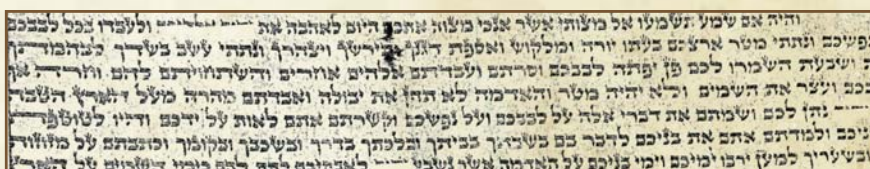 והיה אם שמע תשמעו אל מצותי אשר אנכי מצוה אתכם היום לאהבה את ולעבדו בכל לבבכם
נפשכם ונתתי מטר ארצכם בעתו יורה ומלקוש ואספת דגנך ותירשך ויצהרך ונתתי עשב בשדך לבהמתך
ושבעת השמרו לכם פן יפתה לבבכם וסרתם ועבדתם אלהים אחרים והשתחויתם להם וחרה אף
בכם ועצר את השמים ולא יהיה מטר והאדמה לא תתן את יבולה ואבדתם מהרה מעל הארץ הטבה
נתן לכם ושמתם את דברי אלה על לבבכם ועל נפשכם וקשרתם אתם לאות על ידכם והיו לטוטפת
ניכם ולמדתם אתם את בניכם לדבר בם בשבתך בביתך ובלכתך בדרך ובשכבך ובקומך וכתבתם על מזוזות
ובשעריך למען ירבו ימיכם וימי בניכם על האדמה אשר נשבע לאבתיכם לתת להם כימי השמים על הארץ